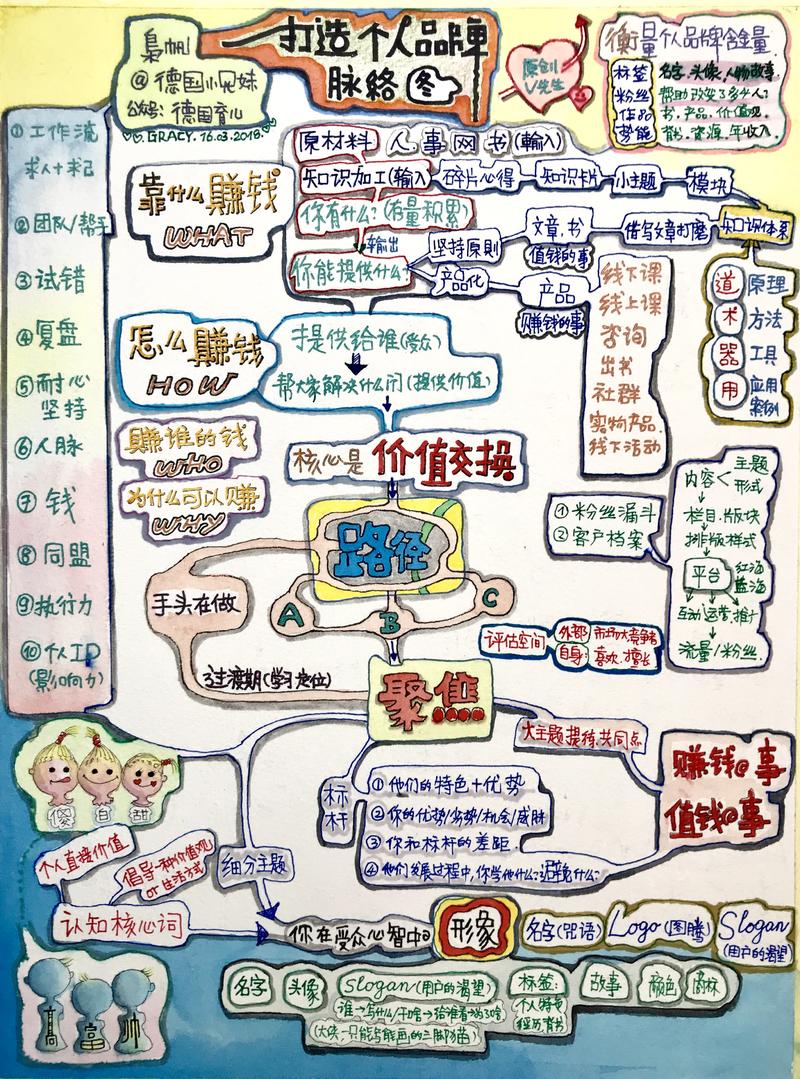 打造个人品牌
脉络图
枭帆
@德国小兄妹
公众号:德国育儿
GRACY.16.03.2018.
原创
V先生
衡量个人品牌含金量
标签 名字.头像.人物故事.
粉丝 帮助/改变了多少人?
作品 书.产品.价值观.
势能 背书.资源.年收入.
①工作流
求人+求己
②团队/帮手
③试错
④复盘
⑤耐心
坚持
⑥人脉
⑦钱
⑧同盟
⑨执行力
⑩个人ID
(影响力)
靠什么賺钱
WHAT
原材料
人.事.网.书(輸入)
知识加工(輸入)
碎片心得
知识卡片
小主题
模块
知识体系
借写文章打磨
文章.书
值钱的事
坚持原則
你有什么?(存量积累)
輸出
你能提供什么?
产品化
产品
賺钱的事
线下课
线上课
咨询
出书
社群
实物产品
线下活动
道 原理
术 方法
器 工具
用 应用
案例
怎么賺钱
HOW
提供给谁(受众)
帮大家解决什么问(提供价值)
賺谁的钱
WHO
为什么可以赚
WHY
核心是 价值交换
路径
A
B
C
手头在做
过渡期(学习.定位)
①粉丝漏斗
②客户档案
内容<主题
形式
栏目.版块
排版样式
平台 红海
蓝海
互动.运营.推广
流量/粉丝.
评估空间
外部:市场大.竞争者
自身:喜欢.擅长
聚焦
大主题提炼.共同点
賺钱の事
值钱の事
标杆
①他们的特色+优势
②你的优势/劣势/机会/威胁
③你和标杆的差距.
④他们发展过程中,你学他什么?避免什么?
傻 白 甜
个人直接价值
倡导一种价值观
or 生活方式
认知核心词
细分主题
你在受众心智中の
形象
名字(咒语)
Logo(图腾)
Slogan
(用户的渴望)
高 富 帅
名字
头像
Slogan(用户的渴望)
谁→写什么/干啥→给谁看→为了啥
标签:
个人特克
经历.背书
故事
颜色
商标